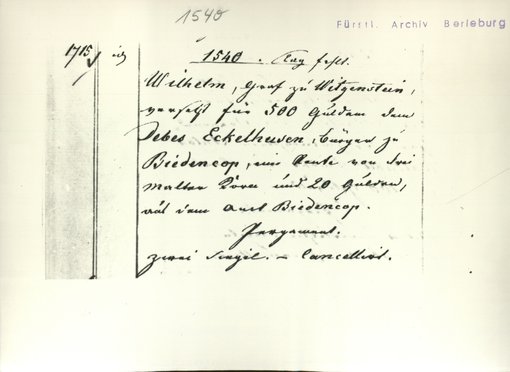 1540
Fürstl. Archiv Berleburg
1715
1540. Tag fehlt.
Wilhelm, Graf zu Witgenstein,
versetzt für 500 Gulden dem
Debes Eckelhusen, Bürger zu
Biedencop, eine Rente von drei
Malter Korn und 20 Gulden,
aus dem Amt Biedencop.
Pergament.
zwei Siegel. – Cancellirt.